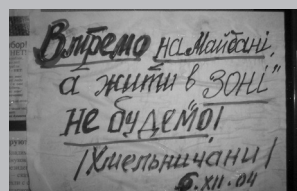 Вмремо на Майдані,
а жити в „ЗОНІ"
не будемо!
/Хмельничани/
6.XII.04